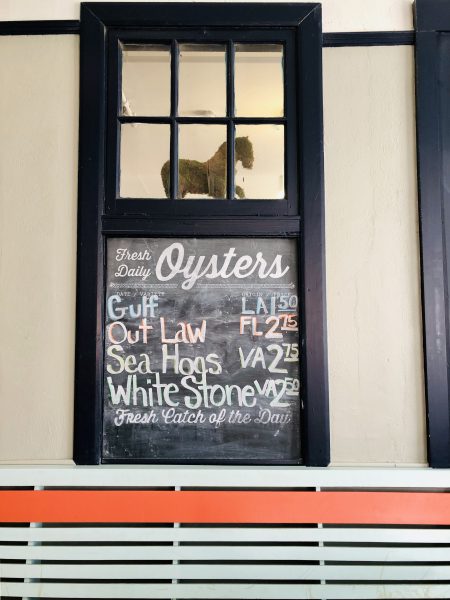 Fresh Daily Oysters
Gulf LA 1 50
Out Law FL 2 75
Sea Hogs VA 2 75
White Stone VA 2 50
Fresh Catch of the Day